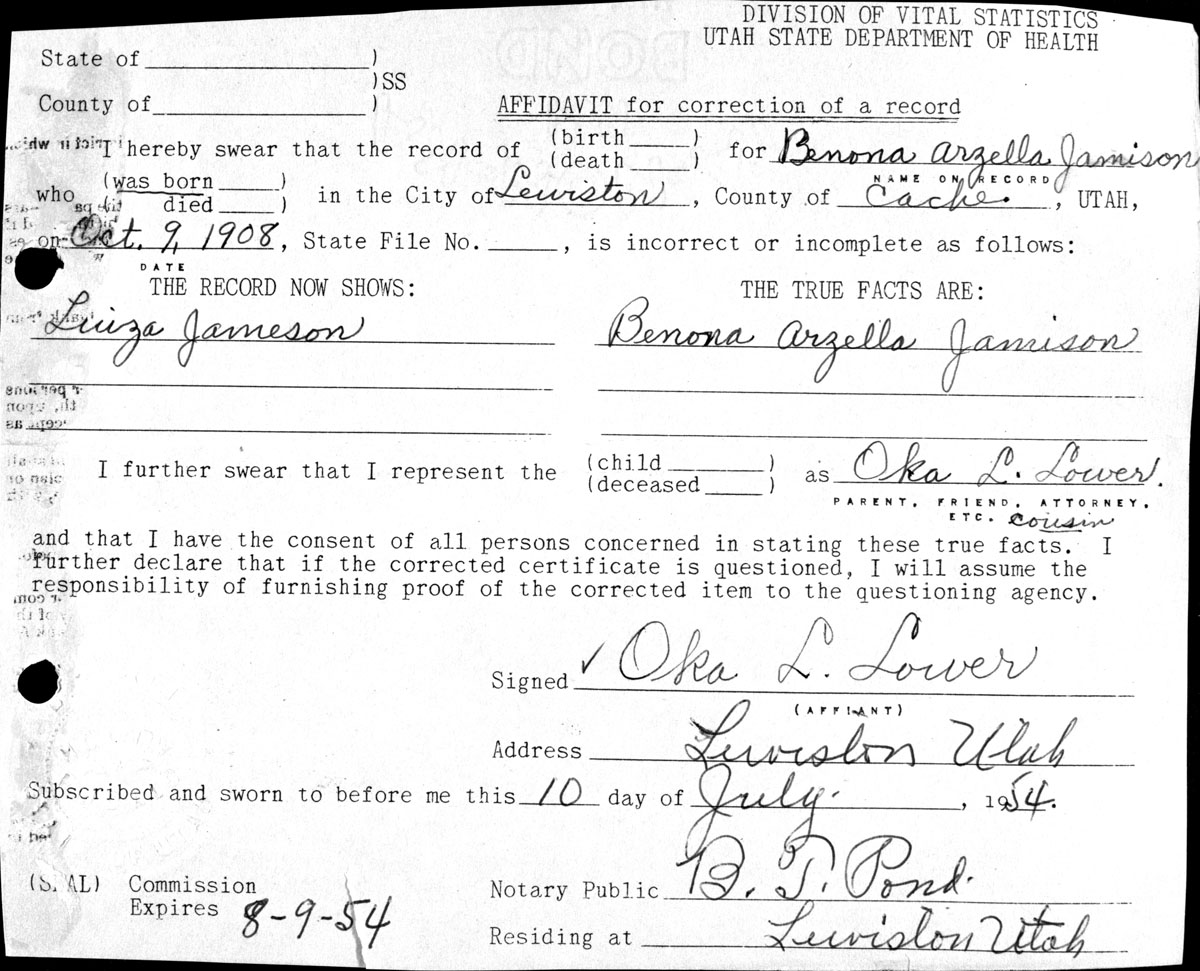 DIVISION OF VITAL STATISTICS
UTAH STATE DEPARTMENT OF HEALTH
State of ____________ )
)SS
County of ____________ )
AFFIDAVIT for correction of a record
I hereby swear that the record of (birth _____ ) (death _____ ) for Benona Arzella Jamison
NAME ON RECORD
who (was born _____ ) ( died _____ ) in the City of Lewiston, County of Cache, UTAH,
on Oct. 9, 1908, State File No. _____, is incorrect or incomplete as follows:
DATE
THE RECORD NOW SHOWS: THE TRUE FACTS ARE:
Luiza Jameson Benona Arzella Jamison
I further swear that I represent the (child _______ ) (deceased _____ ) as Oka L. Lower.
PARENT, FRIEND, ATTORNEY,
ETC. cousin
and that I have the consent of all persons concerned in stating these true facts. I
further declare that if the corrected certificate is questioned, I will assume the
responsibility of furnishing proof of the corrected item to the questioning agency.
Signed ✓ Oka L. Lower
(AFFIANT)
Address Lewiston Utah
Subscribed and sworn to before me this 10 day of July, 1954.
(S AL) Commission Notary Public B. T. Pond.
Expires 8-9-54
Residing at Lewiston Utah